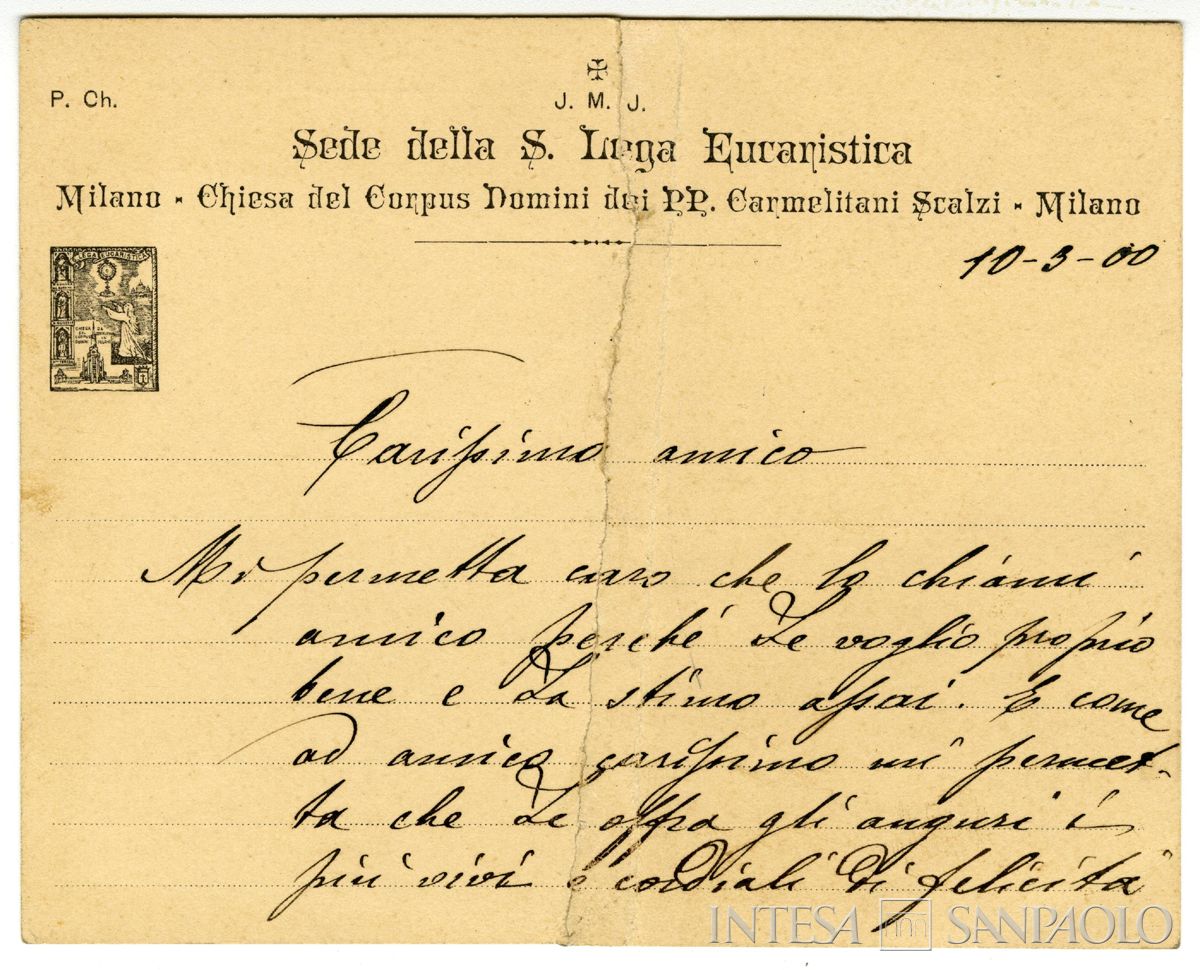 P. Ch.
J. M. J.
Sede della S. Lega Eucaristica
Milano - Chiesa del Corpus Domini dei PP. Carmelitani Scalzi - Milano
10-3-00
LEGA EUCARISTICA
Carissimo amico
Mi permetta caro che lo chiami
amico perché Le voglio proprio
bene e La stimo assai. E come
ad amico carissimo mi permet-
ta che Le offra gli auguri i
più vivi e cordiali di felicità
INTESA SANPAOLO